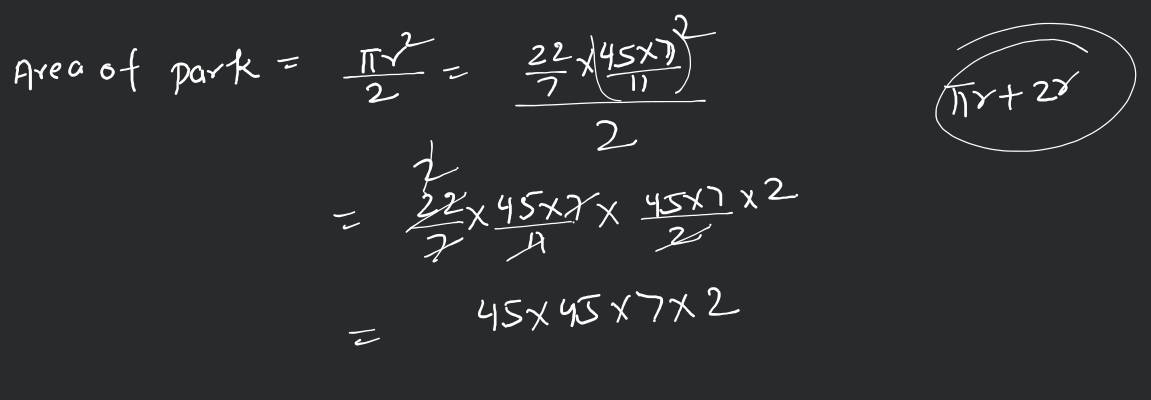 Area of park = πr²/2 = (22/7 × (45×7/11)²)/2
πr + 2r
= 22/7 × 45×7/11 × 45×7/2 × 2
= 45×45×7×2